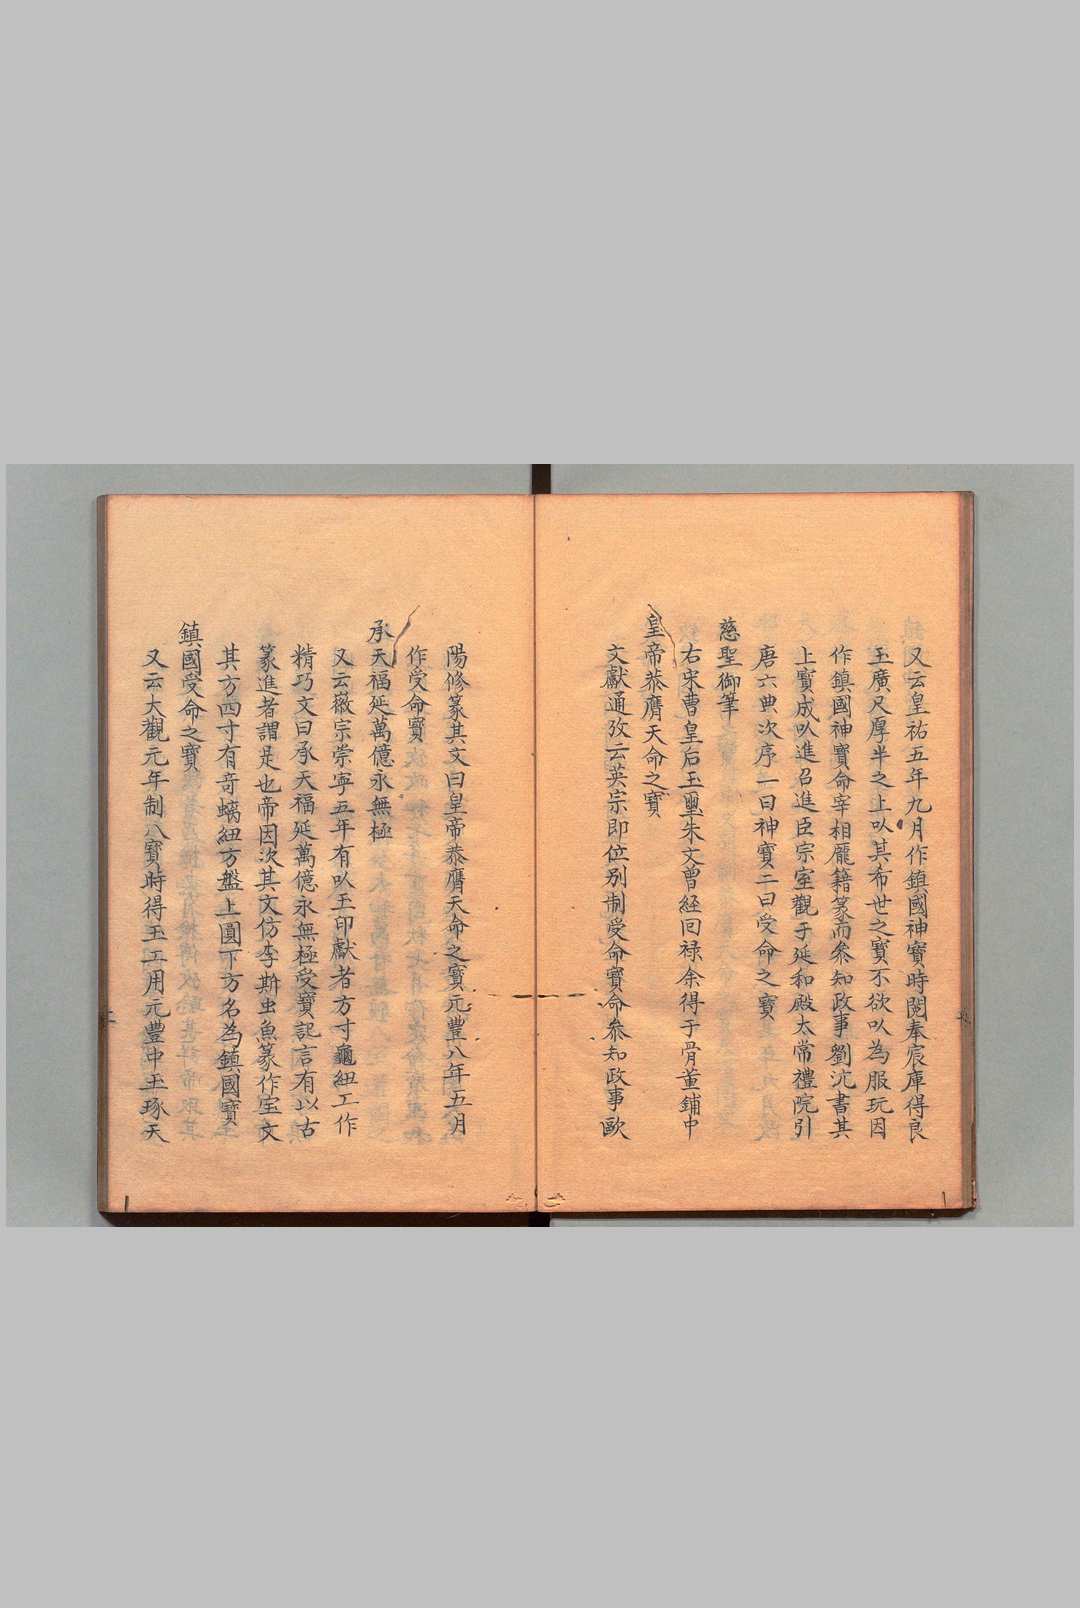 又云皇祐五年九月作鎮國神寶時閱奉宸庫得良
玉廣尺厚半之上以其希世之寶不欲以為服玩因
作鎮國神寶命宰相龐籍篆而叅知政事劉沆書其
上寶成以進召進臣宗室觀于延和殿太常禮院引
唐六典次序一曰神寶二曰受命之寶
慈聖御筆
右宋曹皇后玉璽朱文曾經回祿余得于骨董鋪中
皇帝恭膺天命之寶
文獻通攷云英宗即位別制受命寶命叅知政事歐
陽修篆其文曰皇帝恭膺天命之寶元豐八年五月
作受命寶
承天福延萬億永無極
又云徽宗崇寧五年有以玉印獻者方寸龜紐工作
精巧文曰承天福延萬億永無極受寶記言有以古
篆進者謂是也帝因次其文仿李斯虫魚篆作宝文
其方四寸有奇螭紐方盤上圓下方名為鎮國寶
鎮國受命之寶
又云大觀元年制八寶時得玉工用元豐中玉琢天